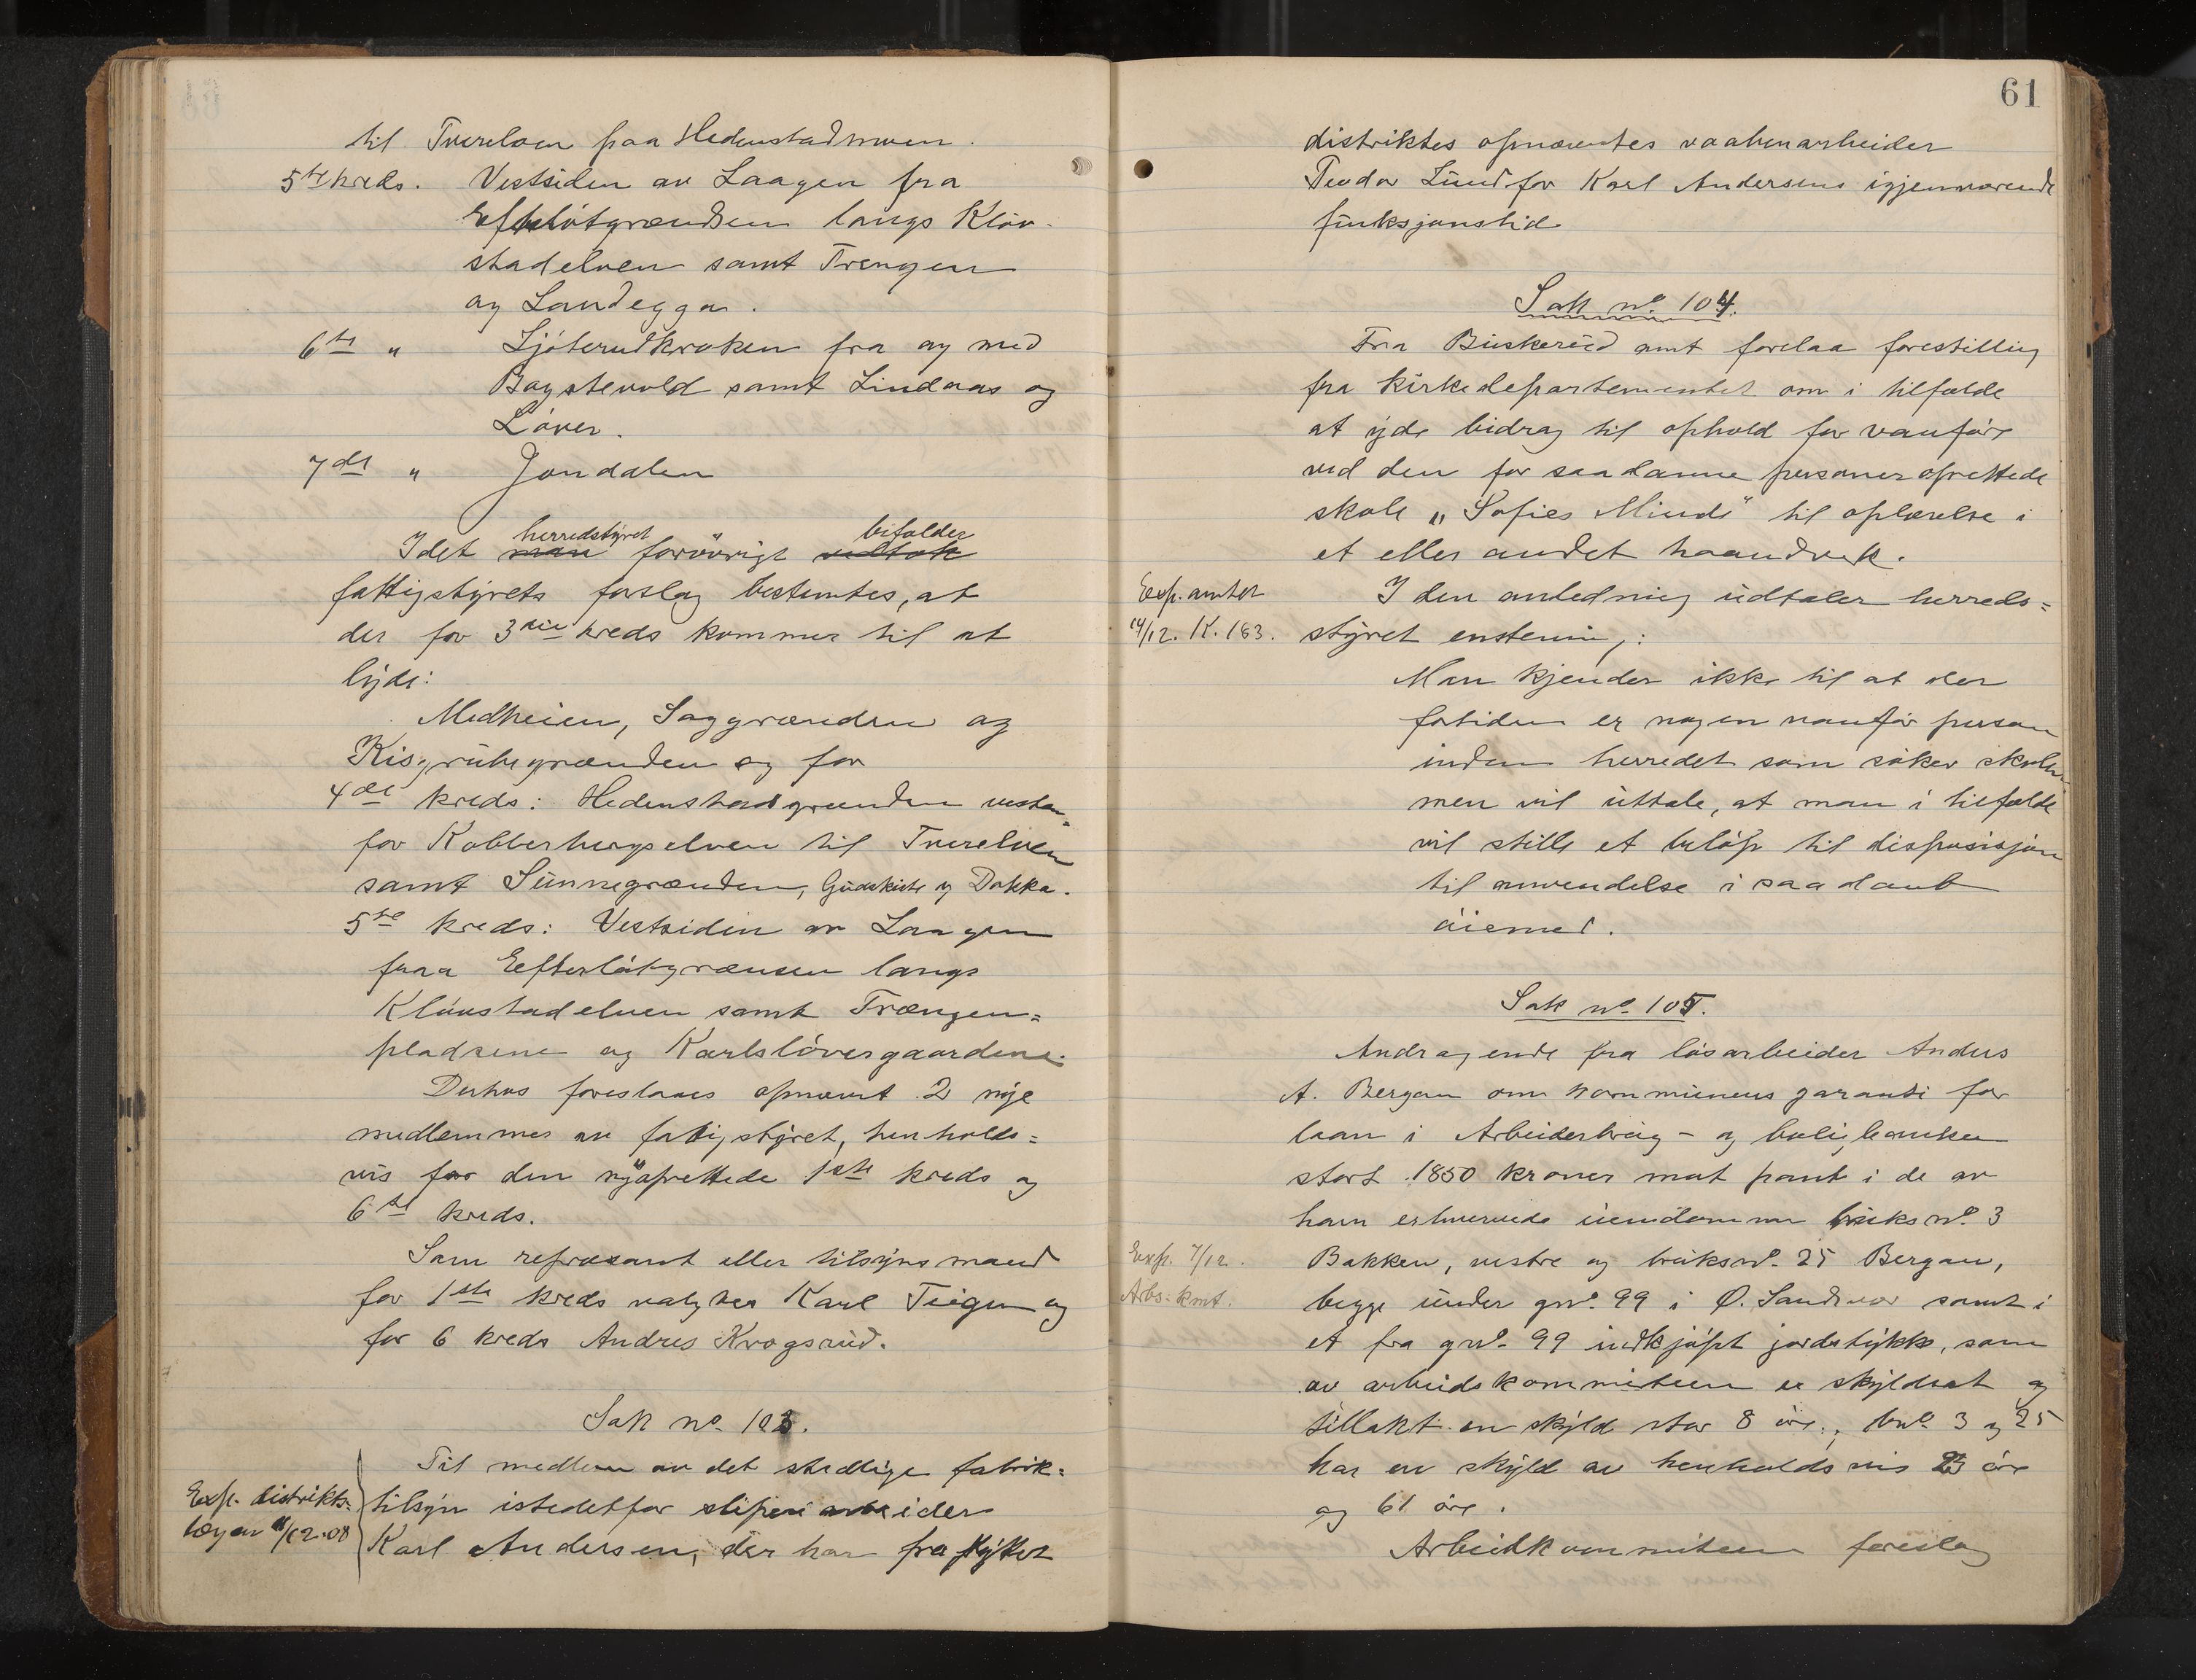 til Tverelven paa Hedenstadmoen.
5te kreds. Vestsiden av Laagen fra
Efteløtgrændsen langs Kløv-
stadelven samt Trengen
og Landeggen.
6te " Ljøterudkroken fra og med
Bøgstevold samt Lindaas og
Løver.
7de " Jondalen
herredstyret befalder
Idet man forøvrigt vedtok
fattigstyrets forslag bestemtes, at
der for 3die kreds kommer til at
lyde:
Medheien, Saggrænden og
Kisgrubegrænden og for
4de kreds: Hedenstadgrænden vesten-
for Kobberbergselven til Tverelven
samt Sunnegrænden, Gudskiste og Dokka.
5te kreds: Vestsiden av Laagen
fraa Eefteløtgrænsen langs
Kløvstadelven samt Trængen=
pladsene og Karlsløvergaardene.
Derhos foreslaaes opnævnt 2 nye
medlemmer av fattigstyret, henholds=
vis for den nyoprettede 1ste kreds og
6te kreds.
Som repræsant eller tilsynsmand
for 1ste kreds valgtes Karl Teigen og
for 6 kreds Andres Krogsrud.
Sak no. 103.
Til medlem av det stedlige fabrik=
Exp. distrikts=
tilsyn istedetfor sliperiarbeider
lægen 11/12.08
Karl Andersen, der har fraflyttet
61
distriktes opnævntes vaabenarbeider
Teodor Lund for Karl Andersens igjenværende
funksjonstid
Sak no. 104.
Fra Buskerud amt forelaa forestilling
fra kirkedepartementet om i tilfælde
at yde bidrag til ophold for vanføre
ved den for saadanne personer oprettede
skole „Sofies Minde" til oplærelse i
et eller andet haandverk.
Exp. amtet
14/12. K. 183.
I den anledning udtaler herreds=
styret enstemig:
Man kjender ikke til at der
fortiden er nogen vanfør person
inden herredet som søker skolen
men vil uttale, at man i tilfælde
vil stille et beløp til disposisjon
til anvendelse i saadant
øiemed.
Sak no. 105.
Andragende fra løsarbeider Anders
A. Bergan om kommunens garanti for
laan i Arbeiderbrug- og boligbanken
stort 1850 kroner mot pant i de av
ham erhvervede eiendomme bruksno. 3
Exp. 7/12.
Arbs.kmt.
Bakken, vestre og bruksno. 25 Bergan,
begge under gno. 99 i Ø. Sandsvær samt i
et fra gno. 99 indkjøpt jordstykke, som
av arbeidskommiteen er skyldsat og
tillakt en skyld stor 8 øre., bno. 3 og 25
har en skyld av henholdsvis 23 øre
og 61 øre.
Arbeidkommiteen foreslog